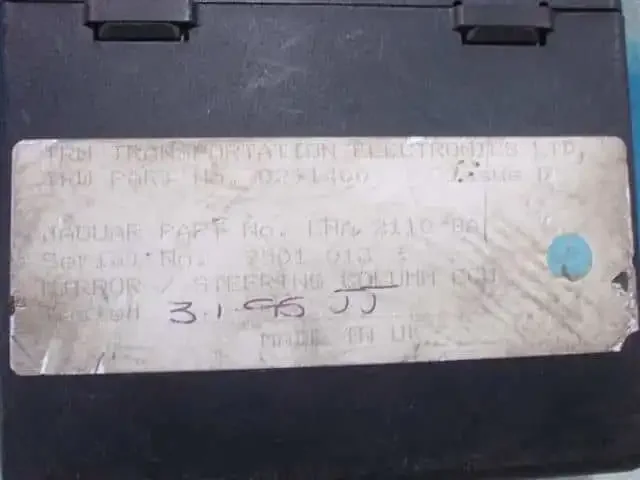 TRW TRANSPORTATION ELECTRONICS LTD,
TRW PART No. Issue D
JAGUAR PART No.
Serial No. 2901 013
MIRROR / STEERING COLUMN ECU
Tested 3.1.95 JJ
MADE IN UK